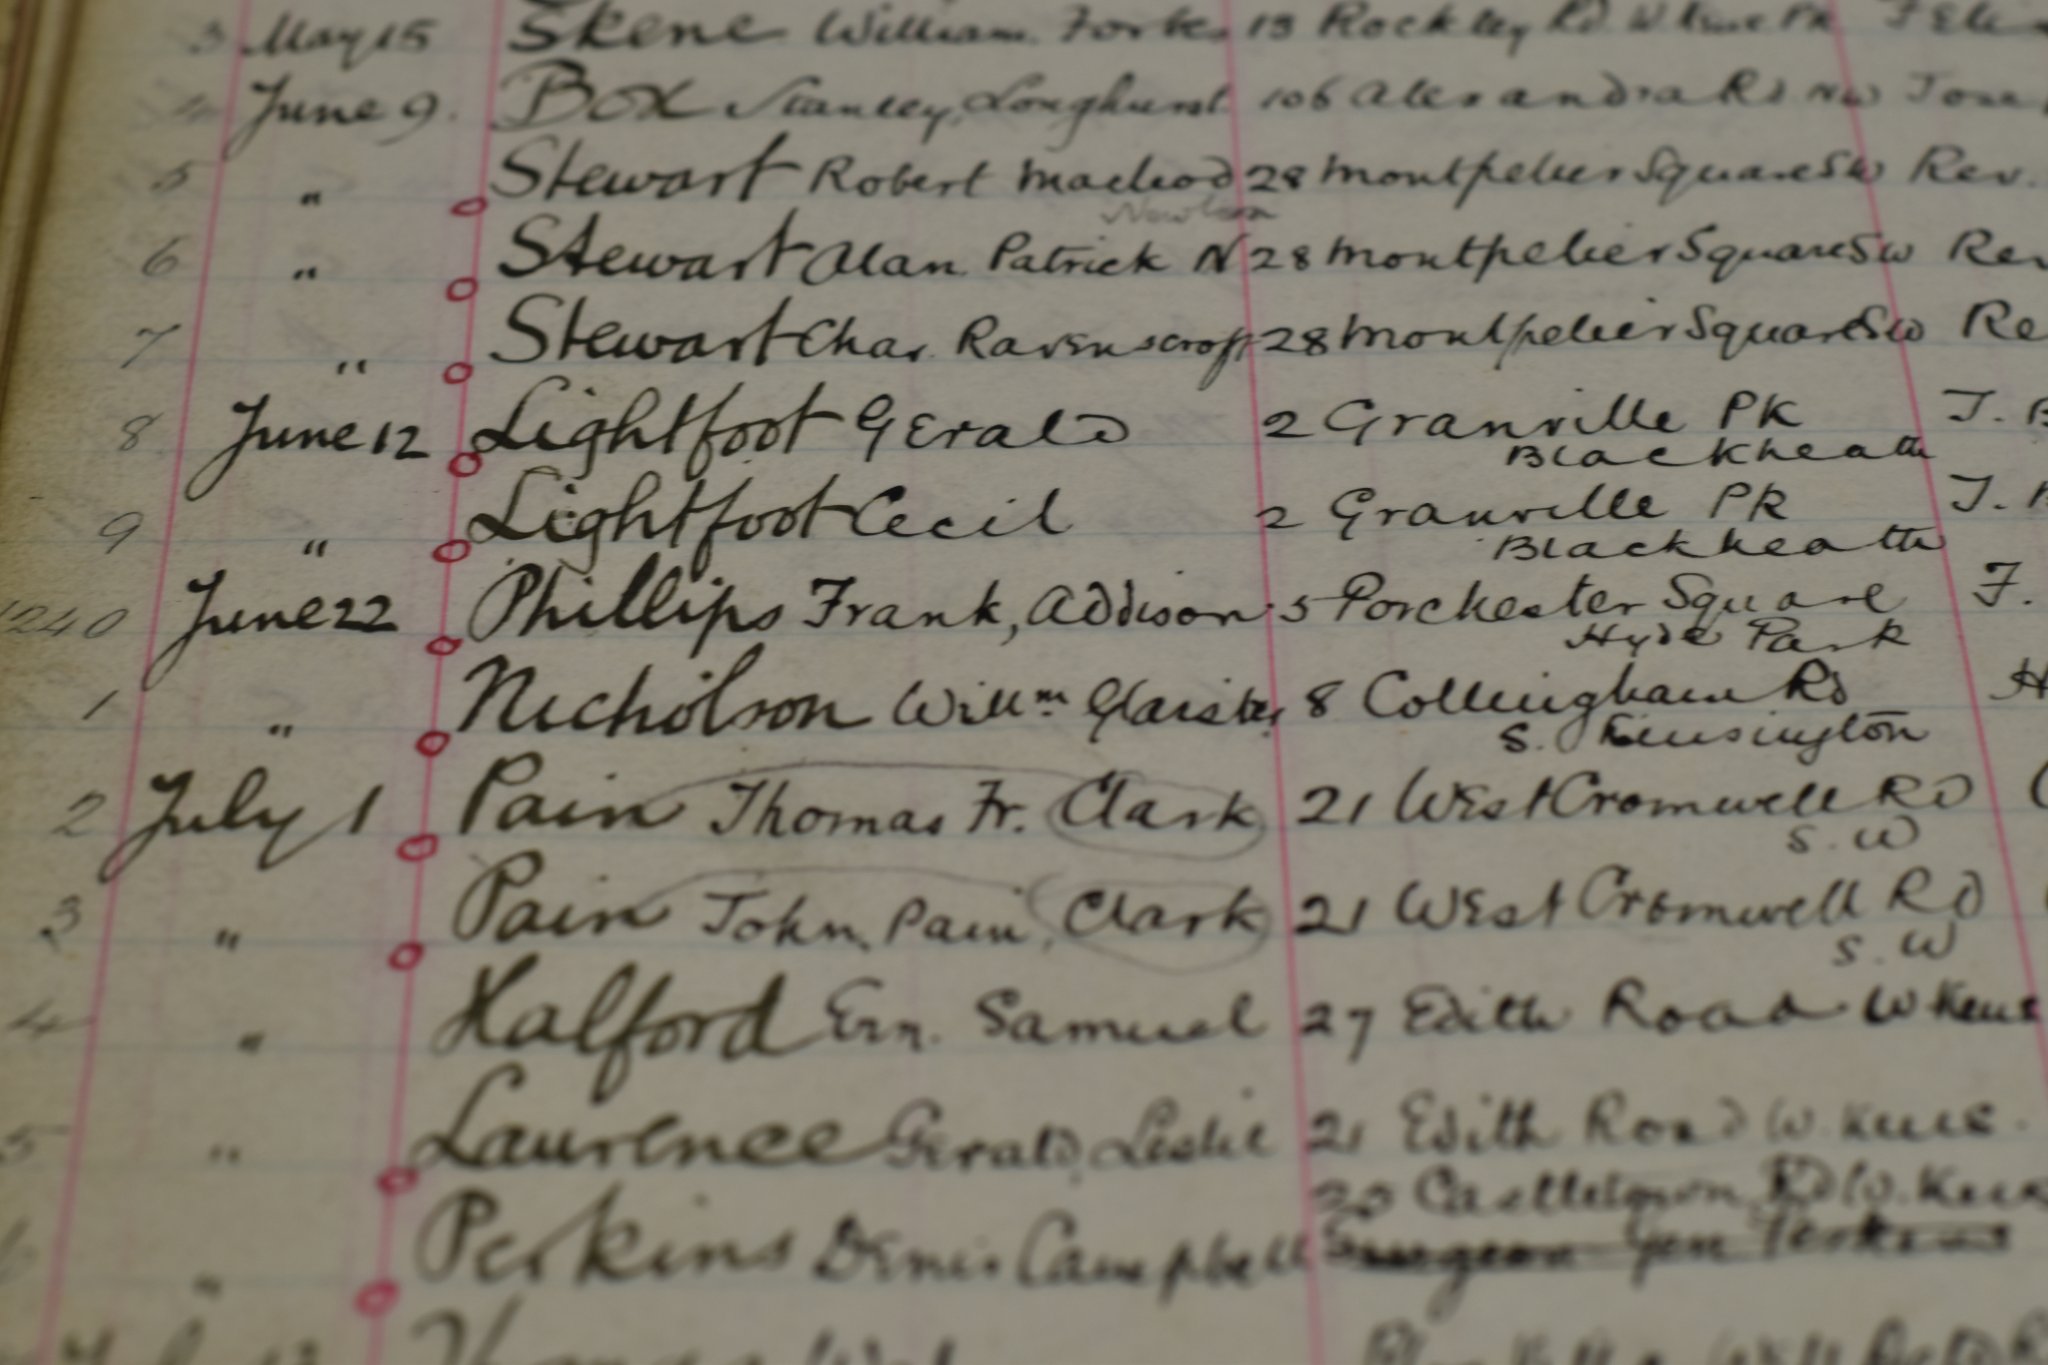 3 May 15 Skene William Forbes 13 Rockley Rd W Kens Pk
4 June 9. Box Stanley Longhurst 106 Alexandra Rd NW
5 " Stewart Robert Macleod 28 Montpelier Square SW Rev.
Newton
6 " Stewart Alan Patrick N 28 Montpelier Square SW Rev
7 " Stewart Chas. Ravenscroft 28 Montpelier Square SW Re
8 June 12 Lightfoot Gerald 2 Granville Pk J. B
Blackheath
9 " Lightfoot Cecil 2 Granville Pk J. B
Blackheath
1240 June 22 Phillips Frank, Addison 5 Porchester Square F.
Hyde Park
1 " Nicholson Willm Glaister 8 Collingham Rd H
S. Kensington
2 July 1 Pain Thomas Fr. Clark 21 West Cromwell Rd
S.W
3 " Pain John Pain, Clark 21 West Cromwell Rd
S.W
4 " Halford Ern. Samuel 27 Edith Road W Kens
5 " Laurence Gerald Leslie 21 Edith Road W. Kens.
20 Castletown Rd W. Kens
6 " Perkins Denis Campbell Surgeon Gen Perkins